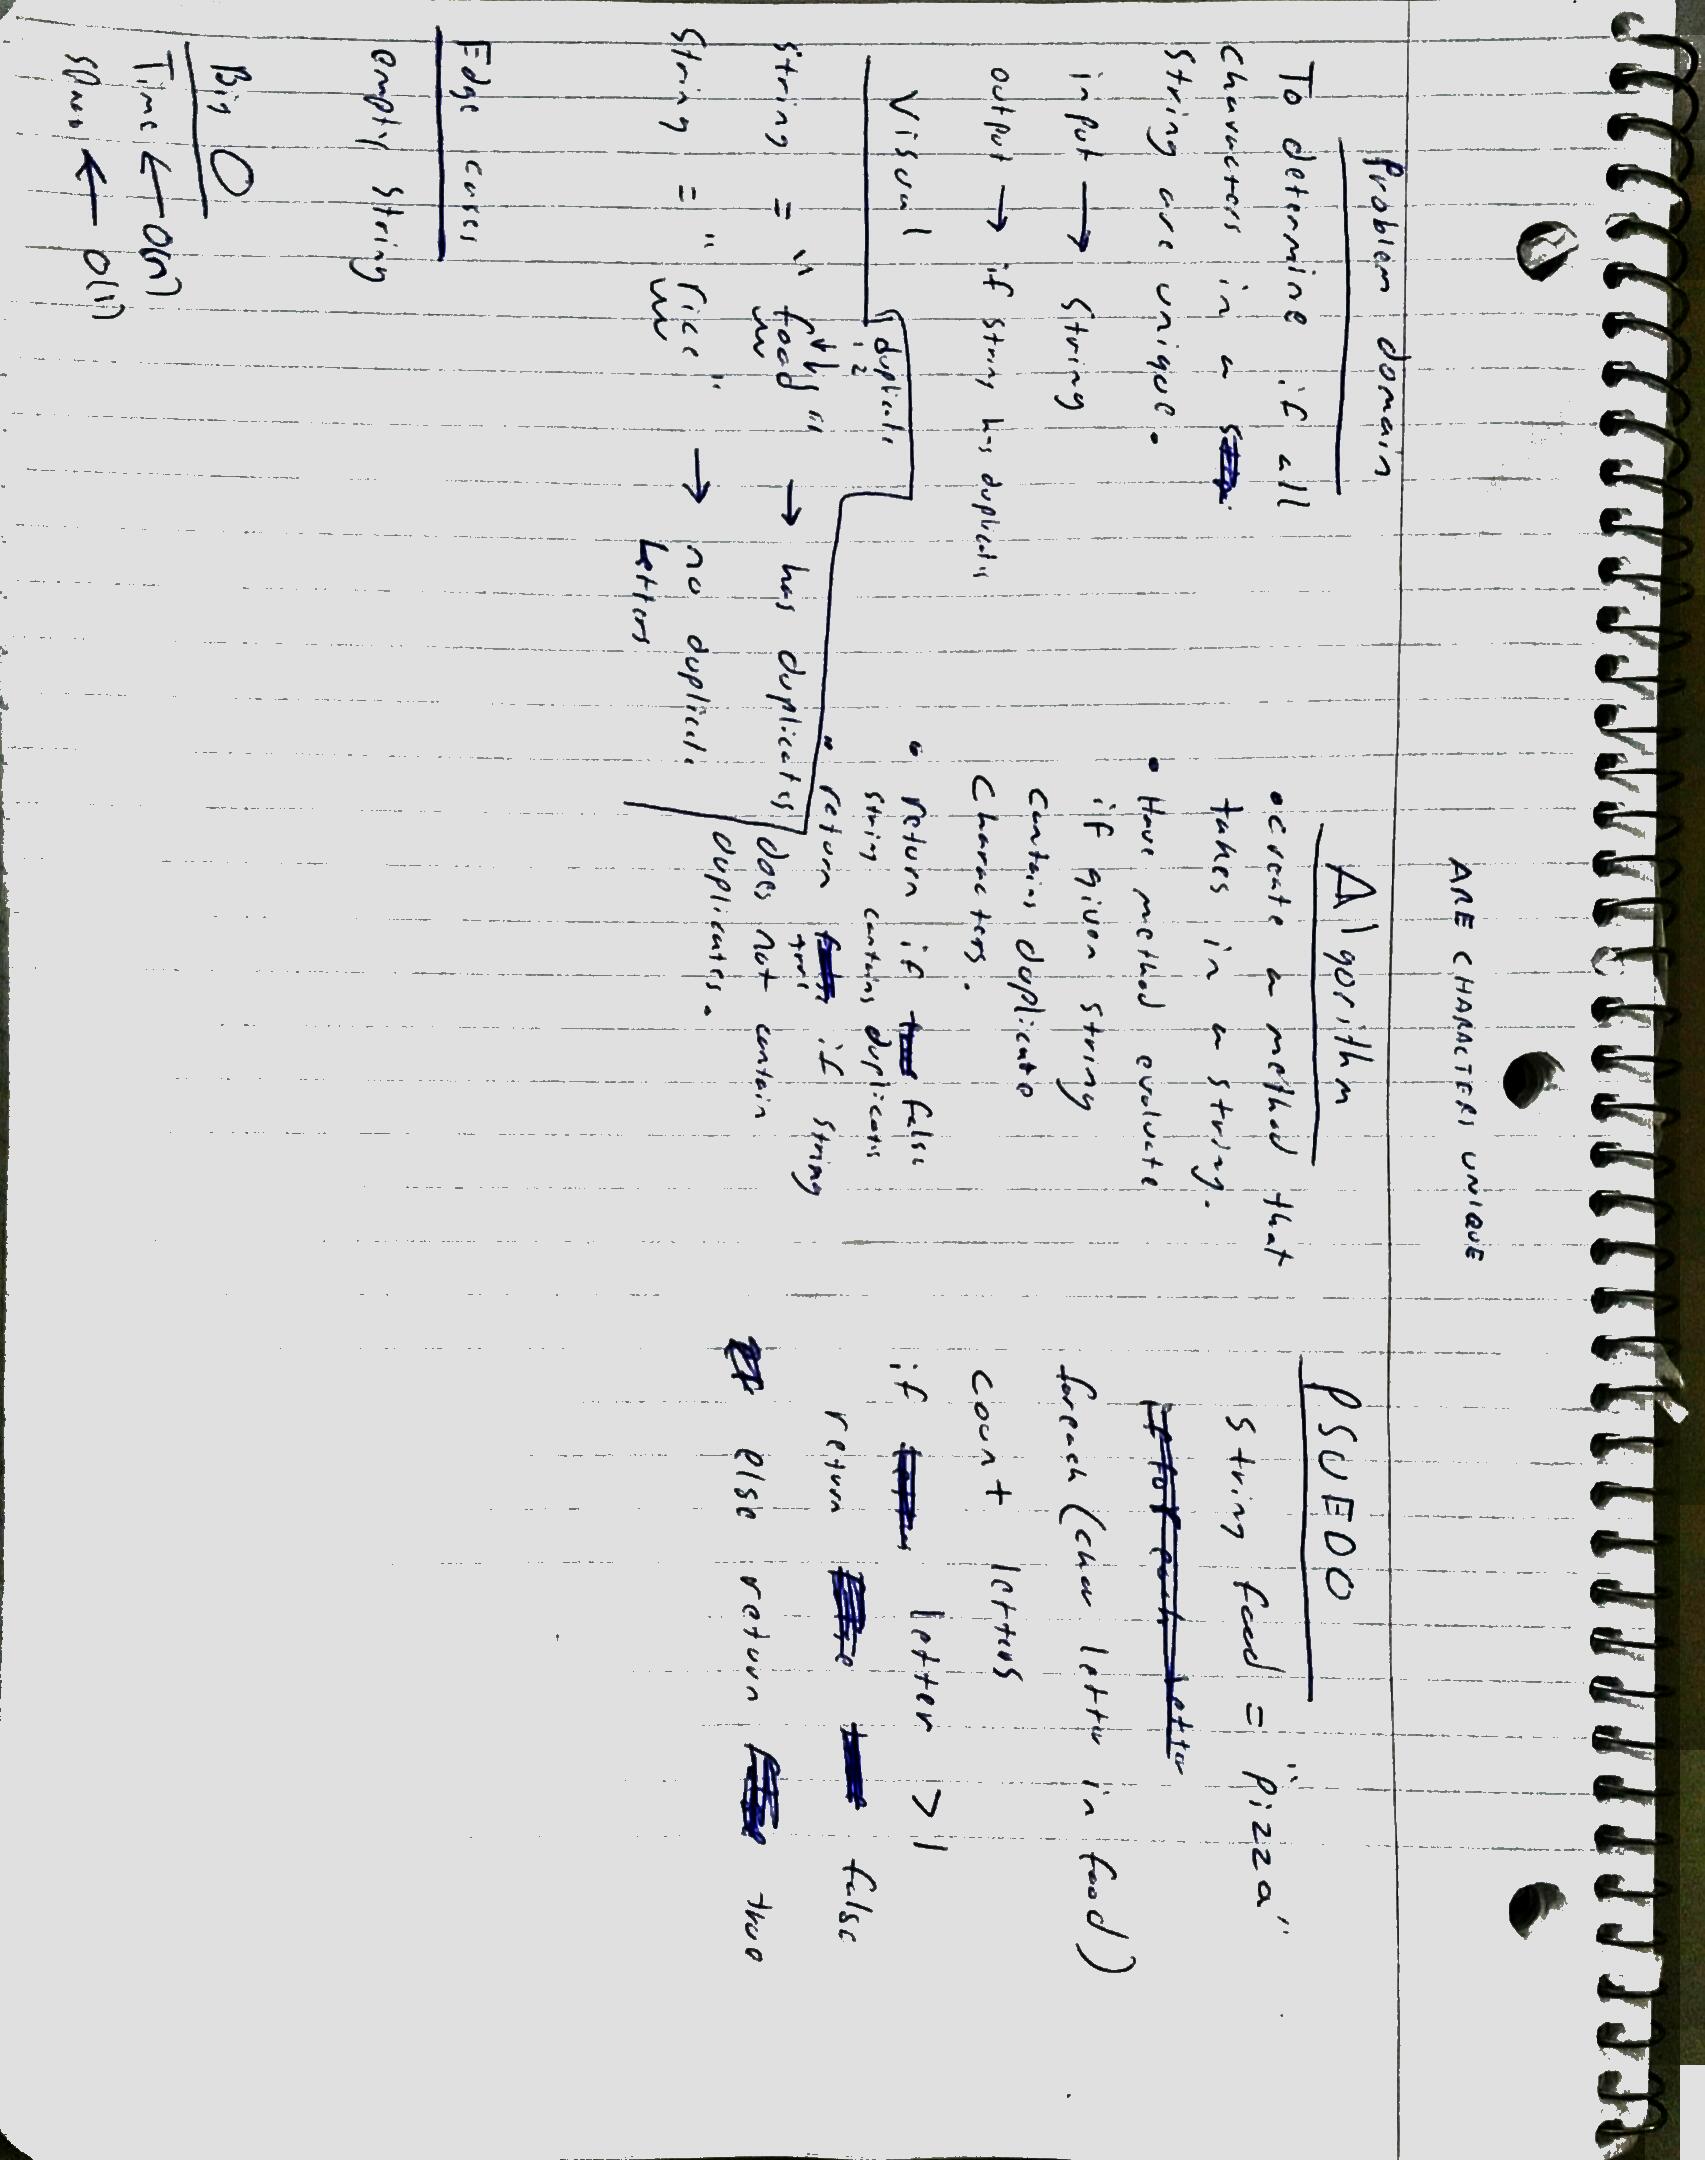 ARE CHARACTERS UNIQUE
Problem domain
To determine if all
characters in a
string are unique.
input → string
output → if string has duplicates
Visual
duplicate
1 2
string = "food" → has duplicates
string = "rice" → no duplicate
Letters
Edge cases
empty string
Big O
Time ← O(n)
Space ← O(1)
Algorithm
• create a method that
takes in a string.
• Have method evaluate
if given string
contains duplicate
characters.
• return if false
string contains duplicates
• return true if string
does not contain
duplicates.
PSUEDO
string food = "pizza"
foreach (char letter in food)
count letters
if letter >1
return false
else return true